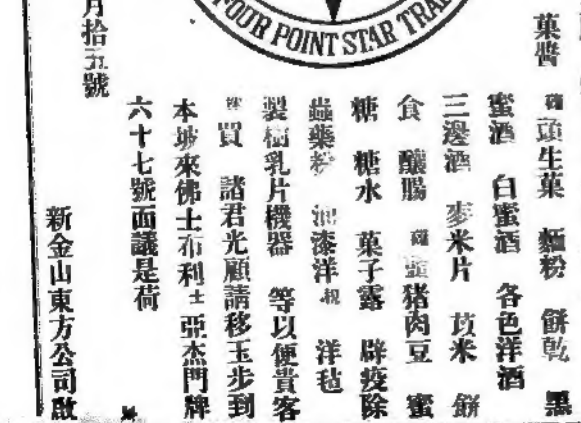 FOUR POINT STAR TRA
菓醬 罐頭生菓 麵粉 餅乾 黑
蜜酒 白蜜酒 各色洋酒
三邊酒 麥米片 苡米 餅
食 釀腸 罐頭猪肉豆 蜜
糖 糖水 菓子露 辟疫除
蟲藥粉 油漆洋 洋毡
製樹乳片機器 等以便貴客
買 諸君光顧請移玉步到
本坡來佛士布利士亞杰門牌
六十七號面議是荷
新金山東方公司啟
月拾五號